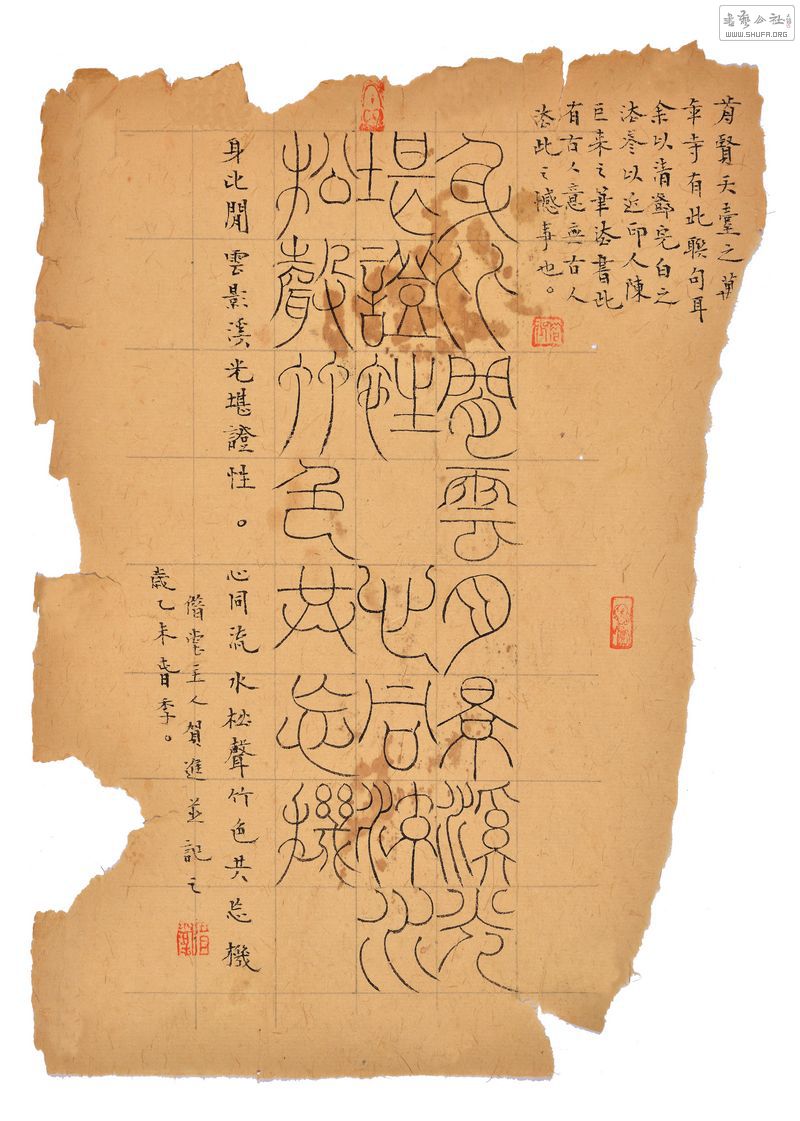 書藝公社
WWW.SHUFA.ORG
前賢天臺之萬
年寺有此聯句耳
余以清鄧完白之
法參以近印人陳
巨來之筆法書此
有古人意無古人
法此之憾事也。
身比閒雲月景溪光
堪證性 心同流水
松聲竹色共忘機
身比閒雲影溪光堪證性。心同流水松聲竹色共忘機
堂主人賀進並記之
歲乙未春季。